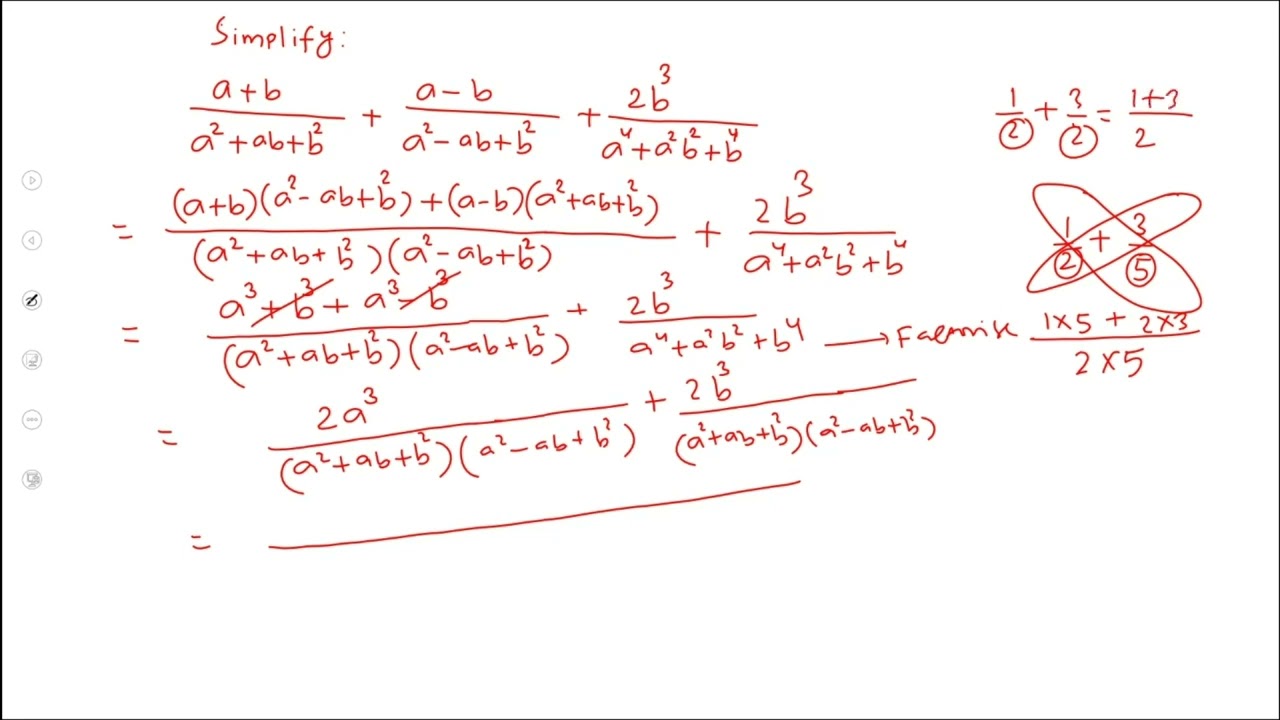 Simplify:
(a+b)/(a²+ab+b²) + (a-b)/(a²-ab+b²) + 2b³/(a⁴+a²b²+b⁴)
= ((a+b)(a²-ab+b²)+(a-b)(a²+ab+b²))/((a²+ab+b²)(a²-ab+b²)) + 2b³/(a⁴+a²b²+b⁴)
= (a³+b³+a³-b³)/((a²+ab+b²)(a²-ab+b²)) + 2b³/(a⁴+a²b²+b⁴) → Factorise
= 2a³/((a²+ab+b²)(a²-ab+b²)) + 2b³/((a²+ab+b²)(a²-ab+b²))
=
1/2 + 3/2 = (1+3)/2
1/2 + 3/5
(1×5 + 2×3)/(2×5)